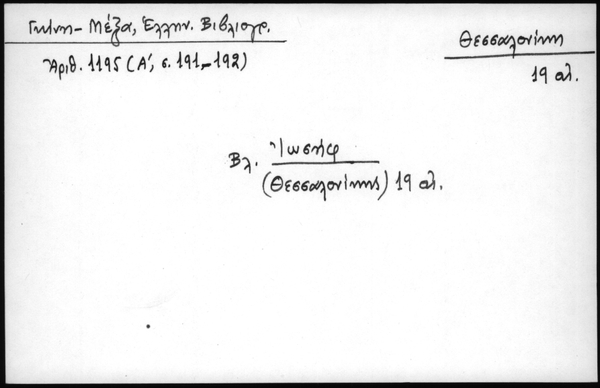 Γκίνη - Μέξα, Ἑλλην. Βιβλιογρ.
Ἀριθ. 1195 (Α΄, σ. 191-192)
Θεσσαλονίκη
19 αἰ.
Βλ. Ἰωσήφ
(Θεσσαλονίκης) 19 αἰ.